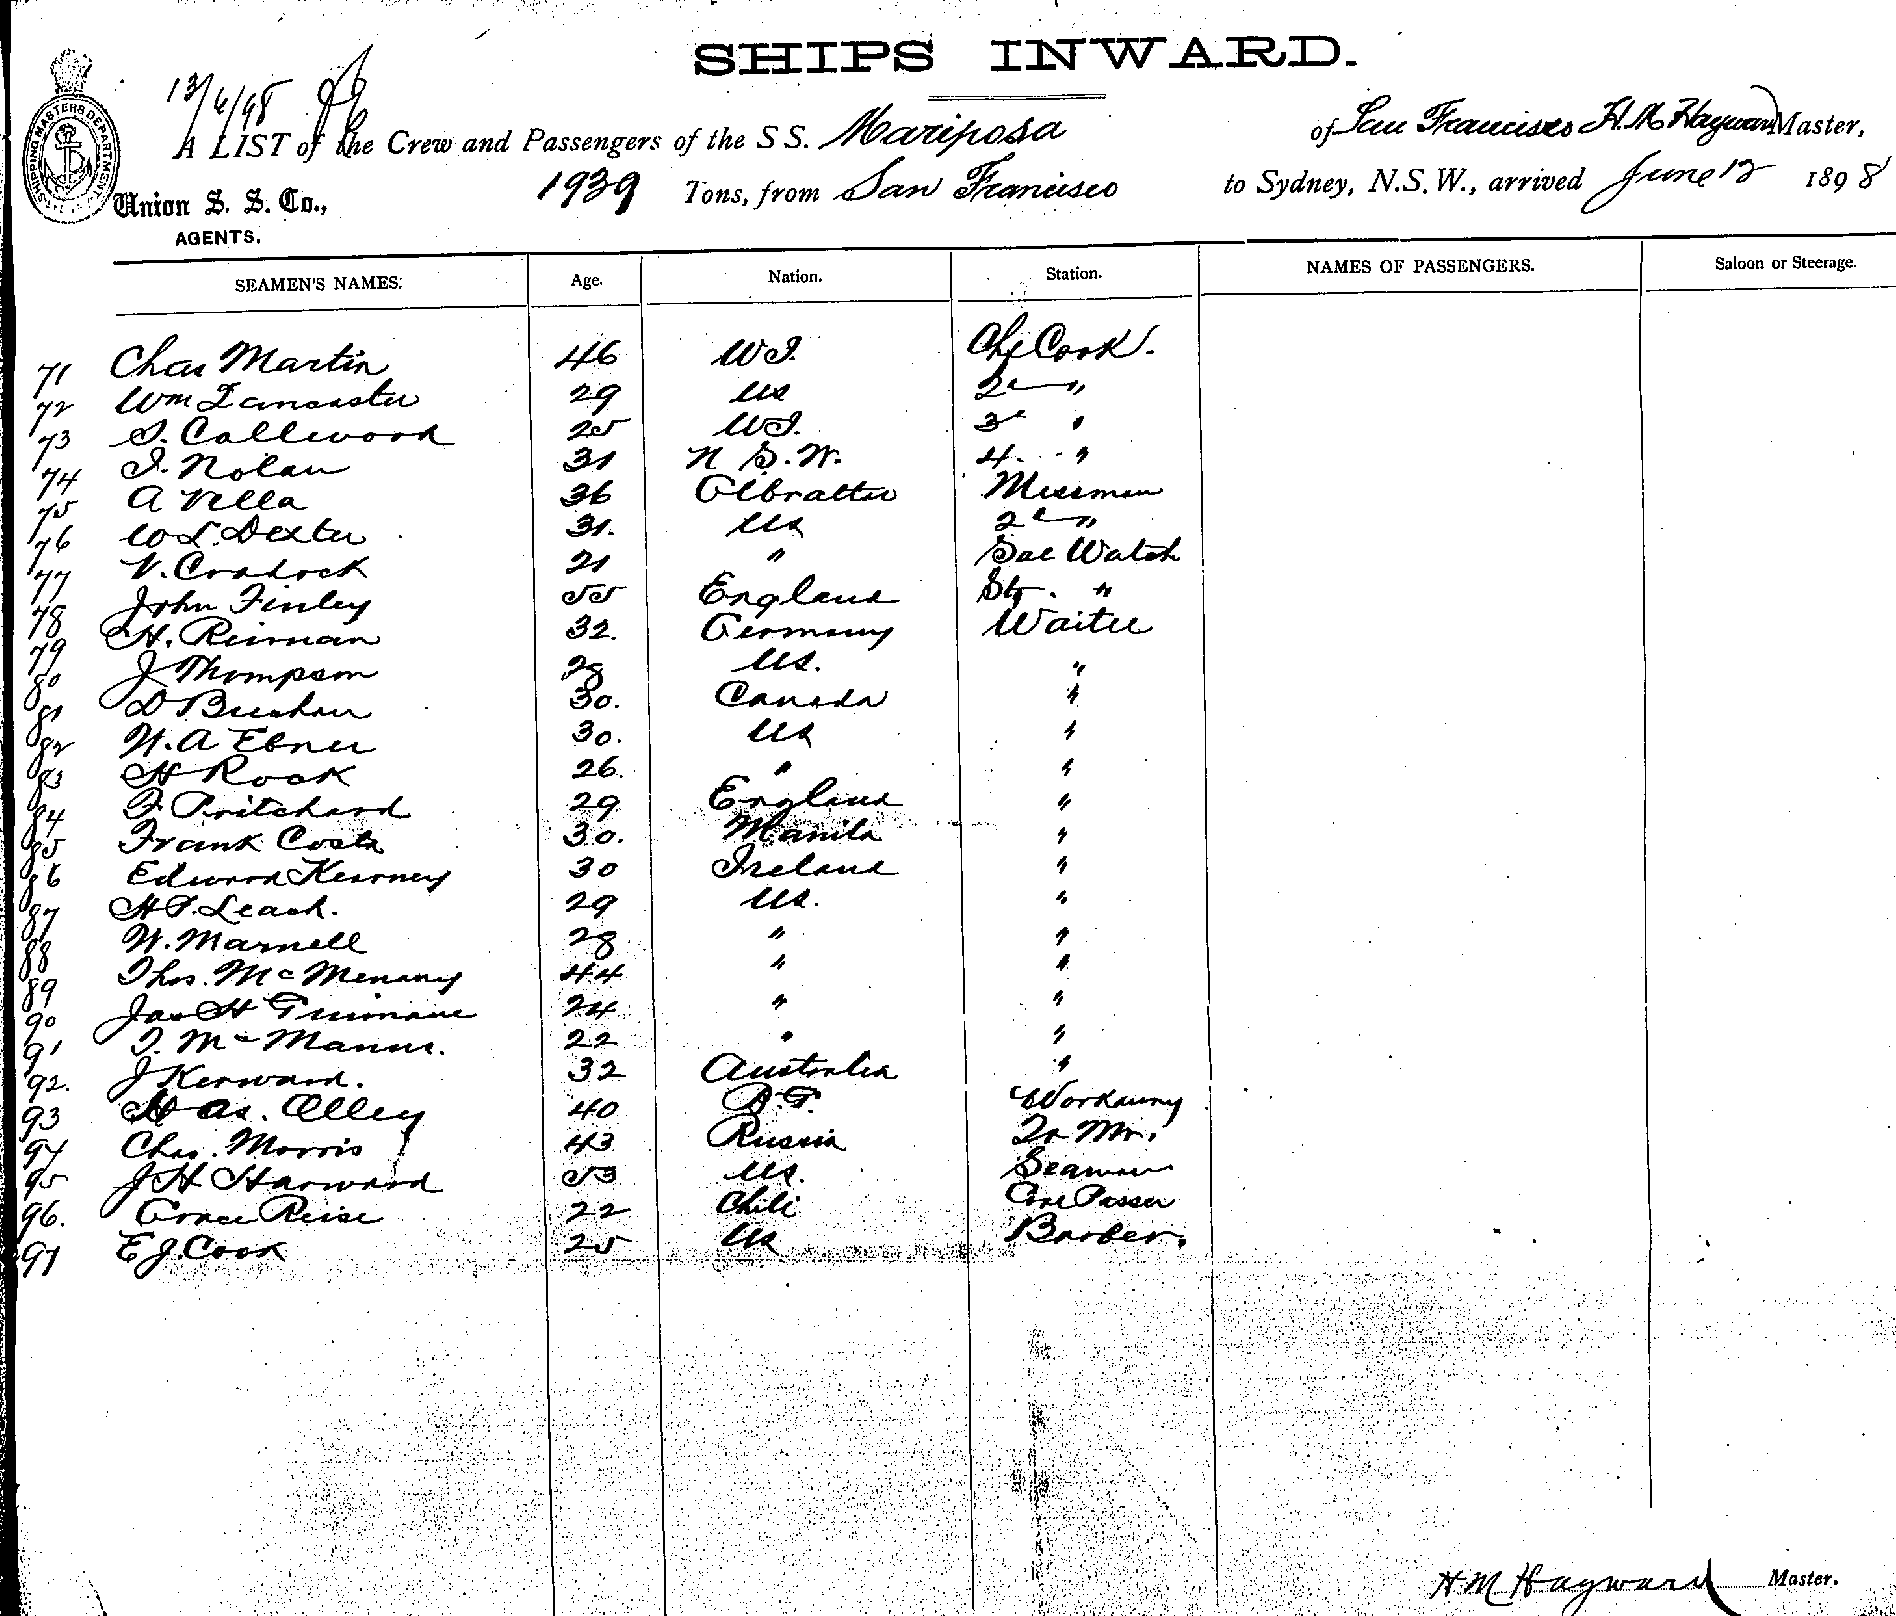 SHIPS INWARD.
13/6/98
SHIPPING MASTERS DEPARTMENT
A LIST of the Crew and Passengers of the S S. Mariposa of San Francisco H. M. Hayward Master,
Union S. S. Co., AGENTS. 1939 Tons, from San Francisco to Sydney, N.S.W., arrived June 12 1898
SEAMEN'S NAMES. Age. Nation. Station. NAMES OF PASSENGERS. Saloon or Steerage.
71 Chas Martin 46 W I. Chf Cook.
72 Wm Lancaster 29 US 2d "
73 S. Callwood 25 W I. 3d "
74 J. Nolan 31 N S. W. 4. "
75 A Vella 36 Gibralter Messman
76 W L. Dexter 31. US 2d "
77 V. Cradock 21 " Sal Watch
78 John Finley 55 England Stg. "
79 H. Reiman 32. Germany Waiter
80 J Thompson 28 US. "
81 D 30. Canada "
82 W. A Ebner 30. US "
83 H Rock 26. " "
84 F Pritchard 29 England "
85 Frank Costa 30. Manila "
86 Edward Kearney 30 Ireland "
87 H F. Leach. 29 US. "
88 W. Marnell 28 " "
89 Thos. Mc Menamy 44 " "
90 Jas H 24 " "
91 T. Mc Manus. 22 " "
92. J Kerward. 32 Australia "
93 Alley 40 Workaway
94 Chas. Morris 43 Russia
95 J H Harward 53 US. Seaman
96. Grace Reise 22 Chili Coal Passer
97 E J. Cook 25 US Barber.
H M Hayward Master.